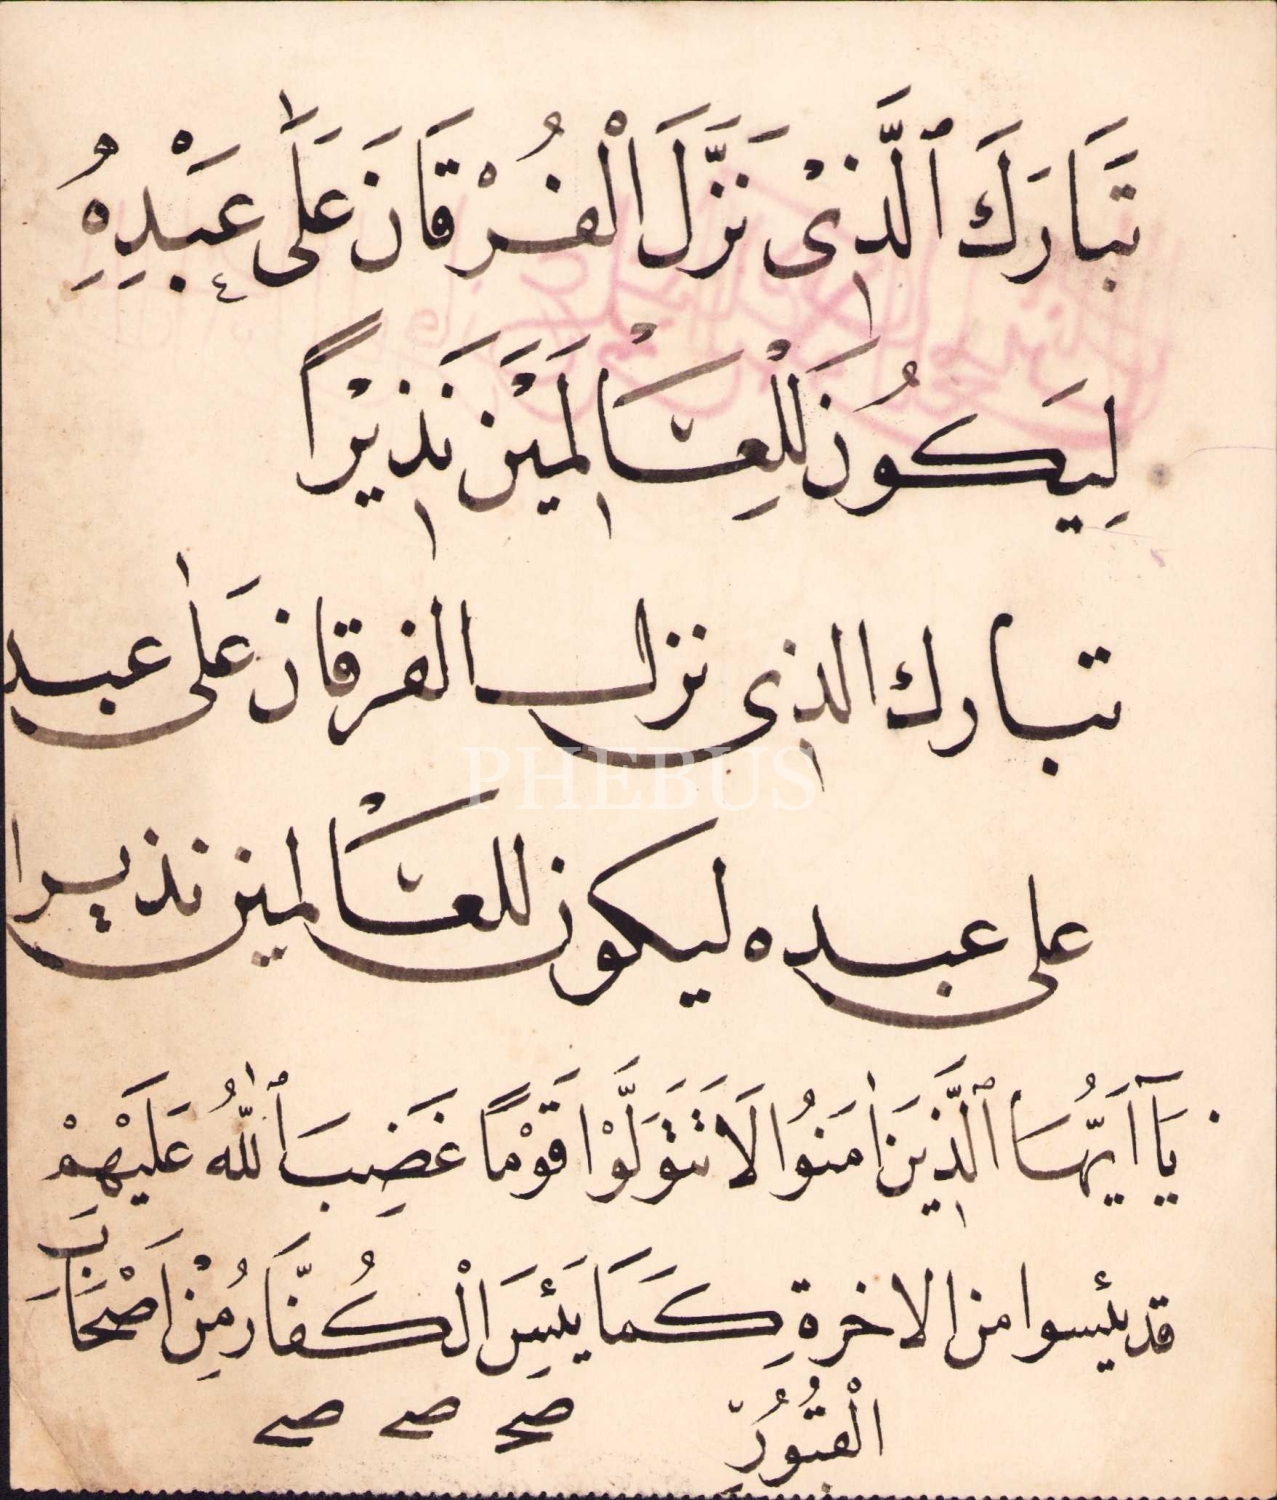 تَبَارَكَ ٱلَّذٖيْ نَزَّلَ الْفُرْقَانَ عَلَىٰ عَبْدِهٖ
لِيَكُونَ لِلْعَالَمٖيْنَ نَذٖيْرًا
تبارك الذٖى نزل الفرقان عَلىٰ عبد
PHEBUS
على عبده ليكون للعَالمين نذيرا
يَآ اَيُّهَا ٱلَّذٖينَ اٰمَنُوا لَا تَتَوَلَّوْا قَوْمًا غَضِبَ ٱللّٰهُ عَلَيْهِمْ
قد يئسوا من الاخرةِ كَمَا يَئِسَ الْكُفَّارُ مِنْ اَصْحَابَ
الْقُبُورِ
صح صح صح